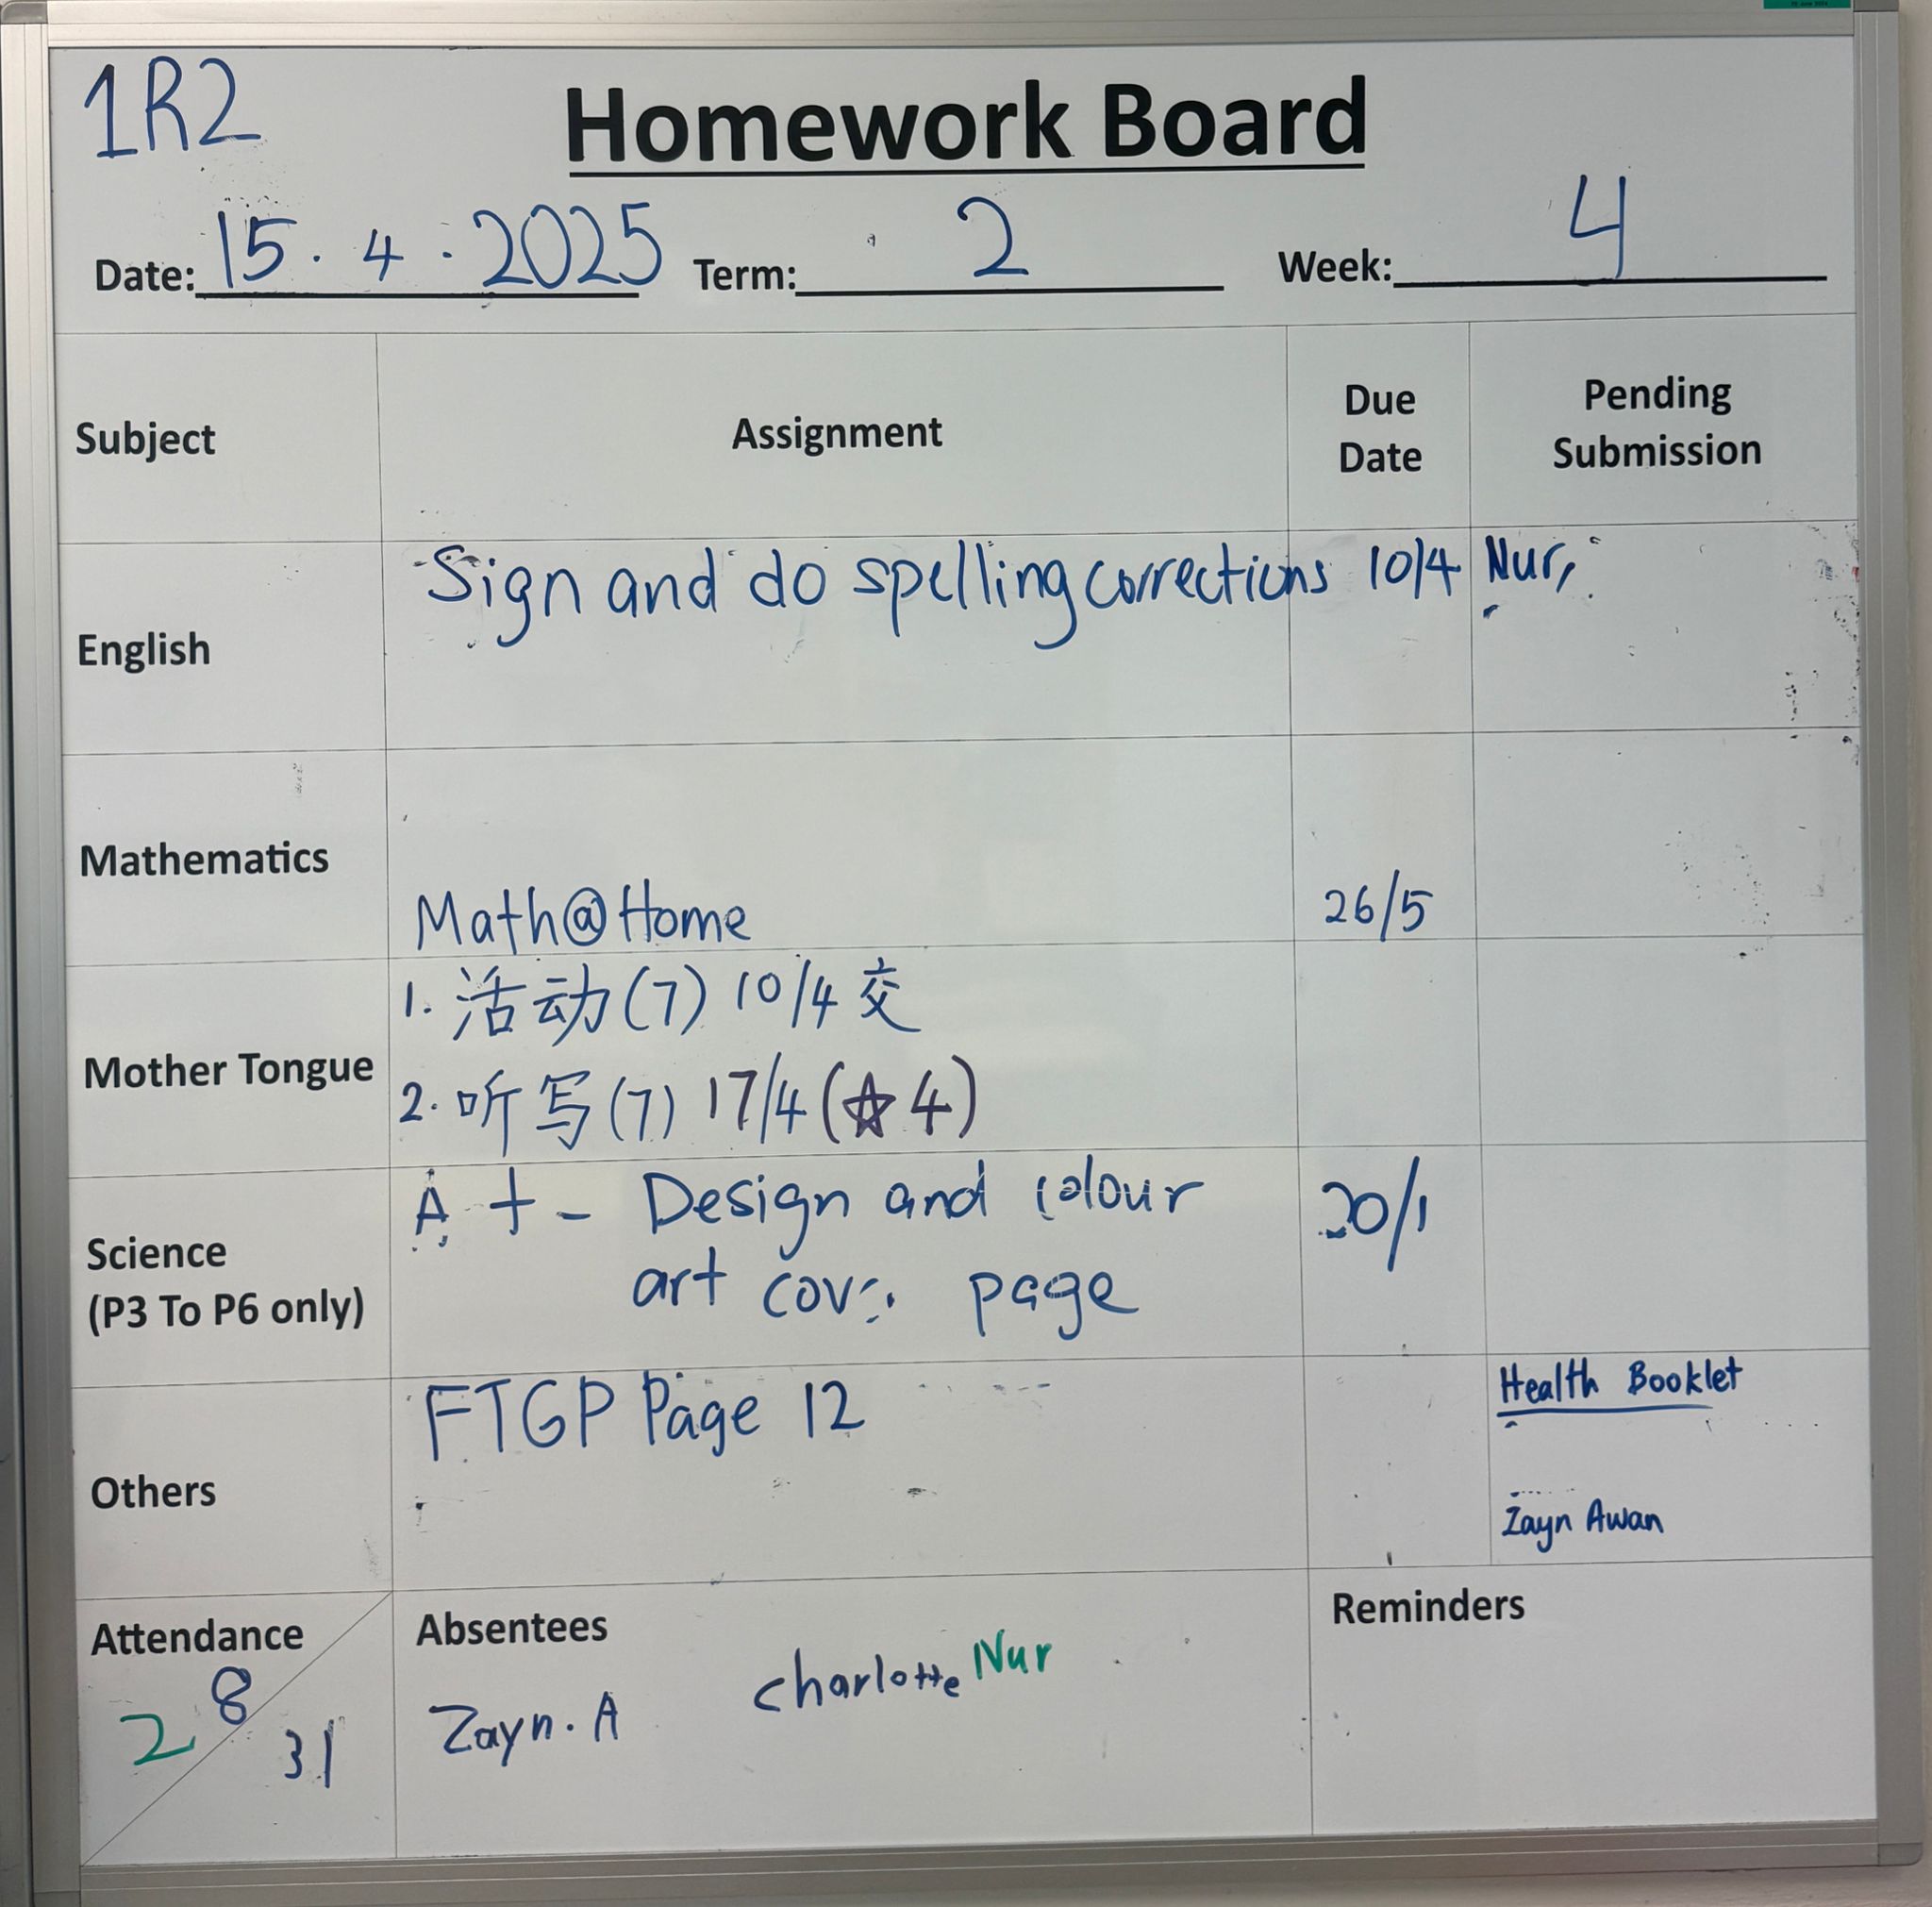 1R2
Homework Board
Date: 15.4.2025 Term: 2 Week: 4
Subject Assignment Due Date Pending Submission
English Sign and do spelling corrections 10/4 Nur,
Mathematics Math@Home 26/5
Mother Tongue
1. 活动(7) 10/4 交
2. 听写(7) 17/4 (☆4)
Science
(P3 To P6 only)
A + - Design and colour 20/1
art page
Others
FTGP Page 12
Health Booklet
Zayn Awan
Attendance
28
31
Absentees
Zayn. A charlotte Nur
Reminders